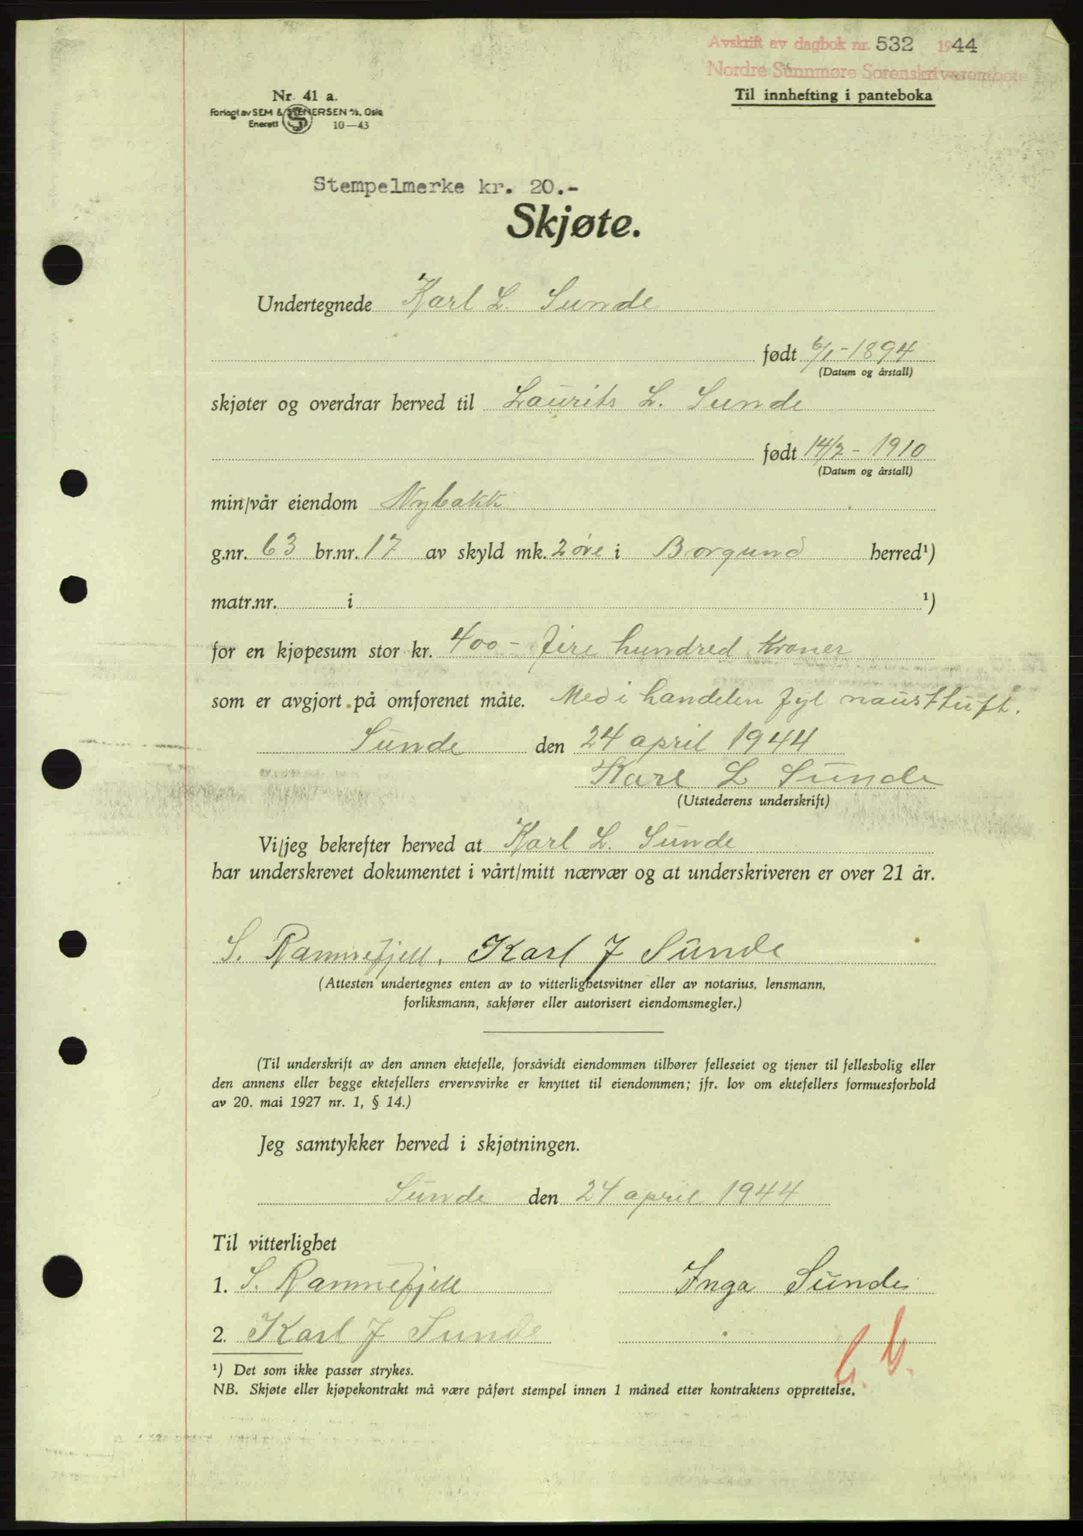 Avskrift av dagbok nr. 532 1944
Nordre Sunnmøre Sorenskriverembete
Til innhefting i panteboka
Nr. 41 a.
Forlagt av SEM & STENERSEN A/S, Oslo
Enerett 10—43
Stempelmerke kr. 20.-
Skjøte.
Undertegnede Karl L. Sunde
født 6/1-1894
(Datum og årstall)
skjøter og overdrar herved til Laurits L. Sunde
født 14/2-1910
(Datum og årstall)
min/vår eiendom Nybakk
g.nr. 63 br.nr. 17 av skyld mk. 2 øre i Borgund herred¹)
matr.nr. i ¹)
for en kjøpesum stor kr. 400 - fire hundred Kroner
som er avgjort på omforenet måte. Med i handelen fyl nausttuft.
Sunde den 24 april 1944
Karl L Sunde
(Utstederens underskrift)
Vi/jeg bekrefter herved at Karl L. Sunde
har underskrevet dokumentet i vårt/mitt nærvær og at underskriveren er over 21 år.
S. Ramnefjell. Karl J Sunde
(Attesten undertegnes enten av to vitterlighetsvitner eller av notarius, lensmann,
forliksmann, sakfører eller autorisert eiendomsmegler.)
(Til underskrift av den annen ektefelle, forsåvidt eiendommen tilhører felleseiet og tjener til fellesbolig eller
den annens eller begge ektefellers ervervsvirke er knyttet til eiendommen; jfr. lov om ektefellers formuesforhold
av 20. mai 1927 nr. 1, § 14.)
Jeg samtykker herved i skjøtningen.
Sunde den 24 april 1944
Til vitterlighet
1. S. Ramnefjell Inga Sunde
2. Karl J Sunde
¹) Det som ikke passer strykes.
NB. Skjøte eller kjøpekontrakt må være påført stempel innen 1 måned etter kontraktens opprettelse.